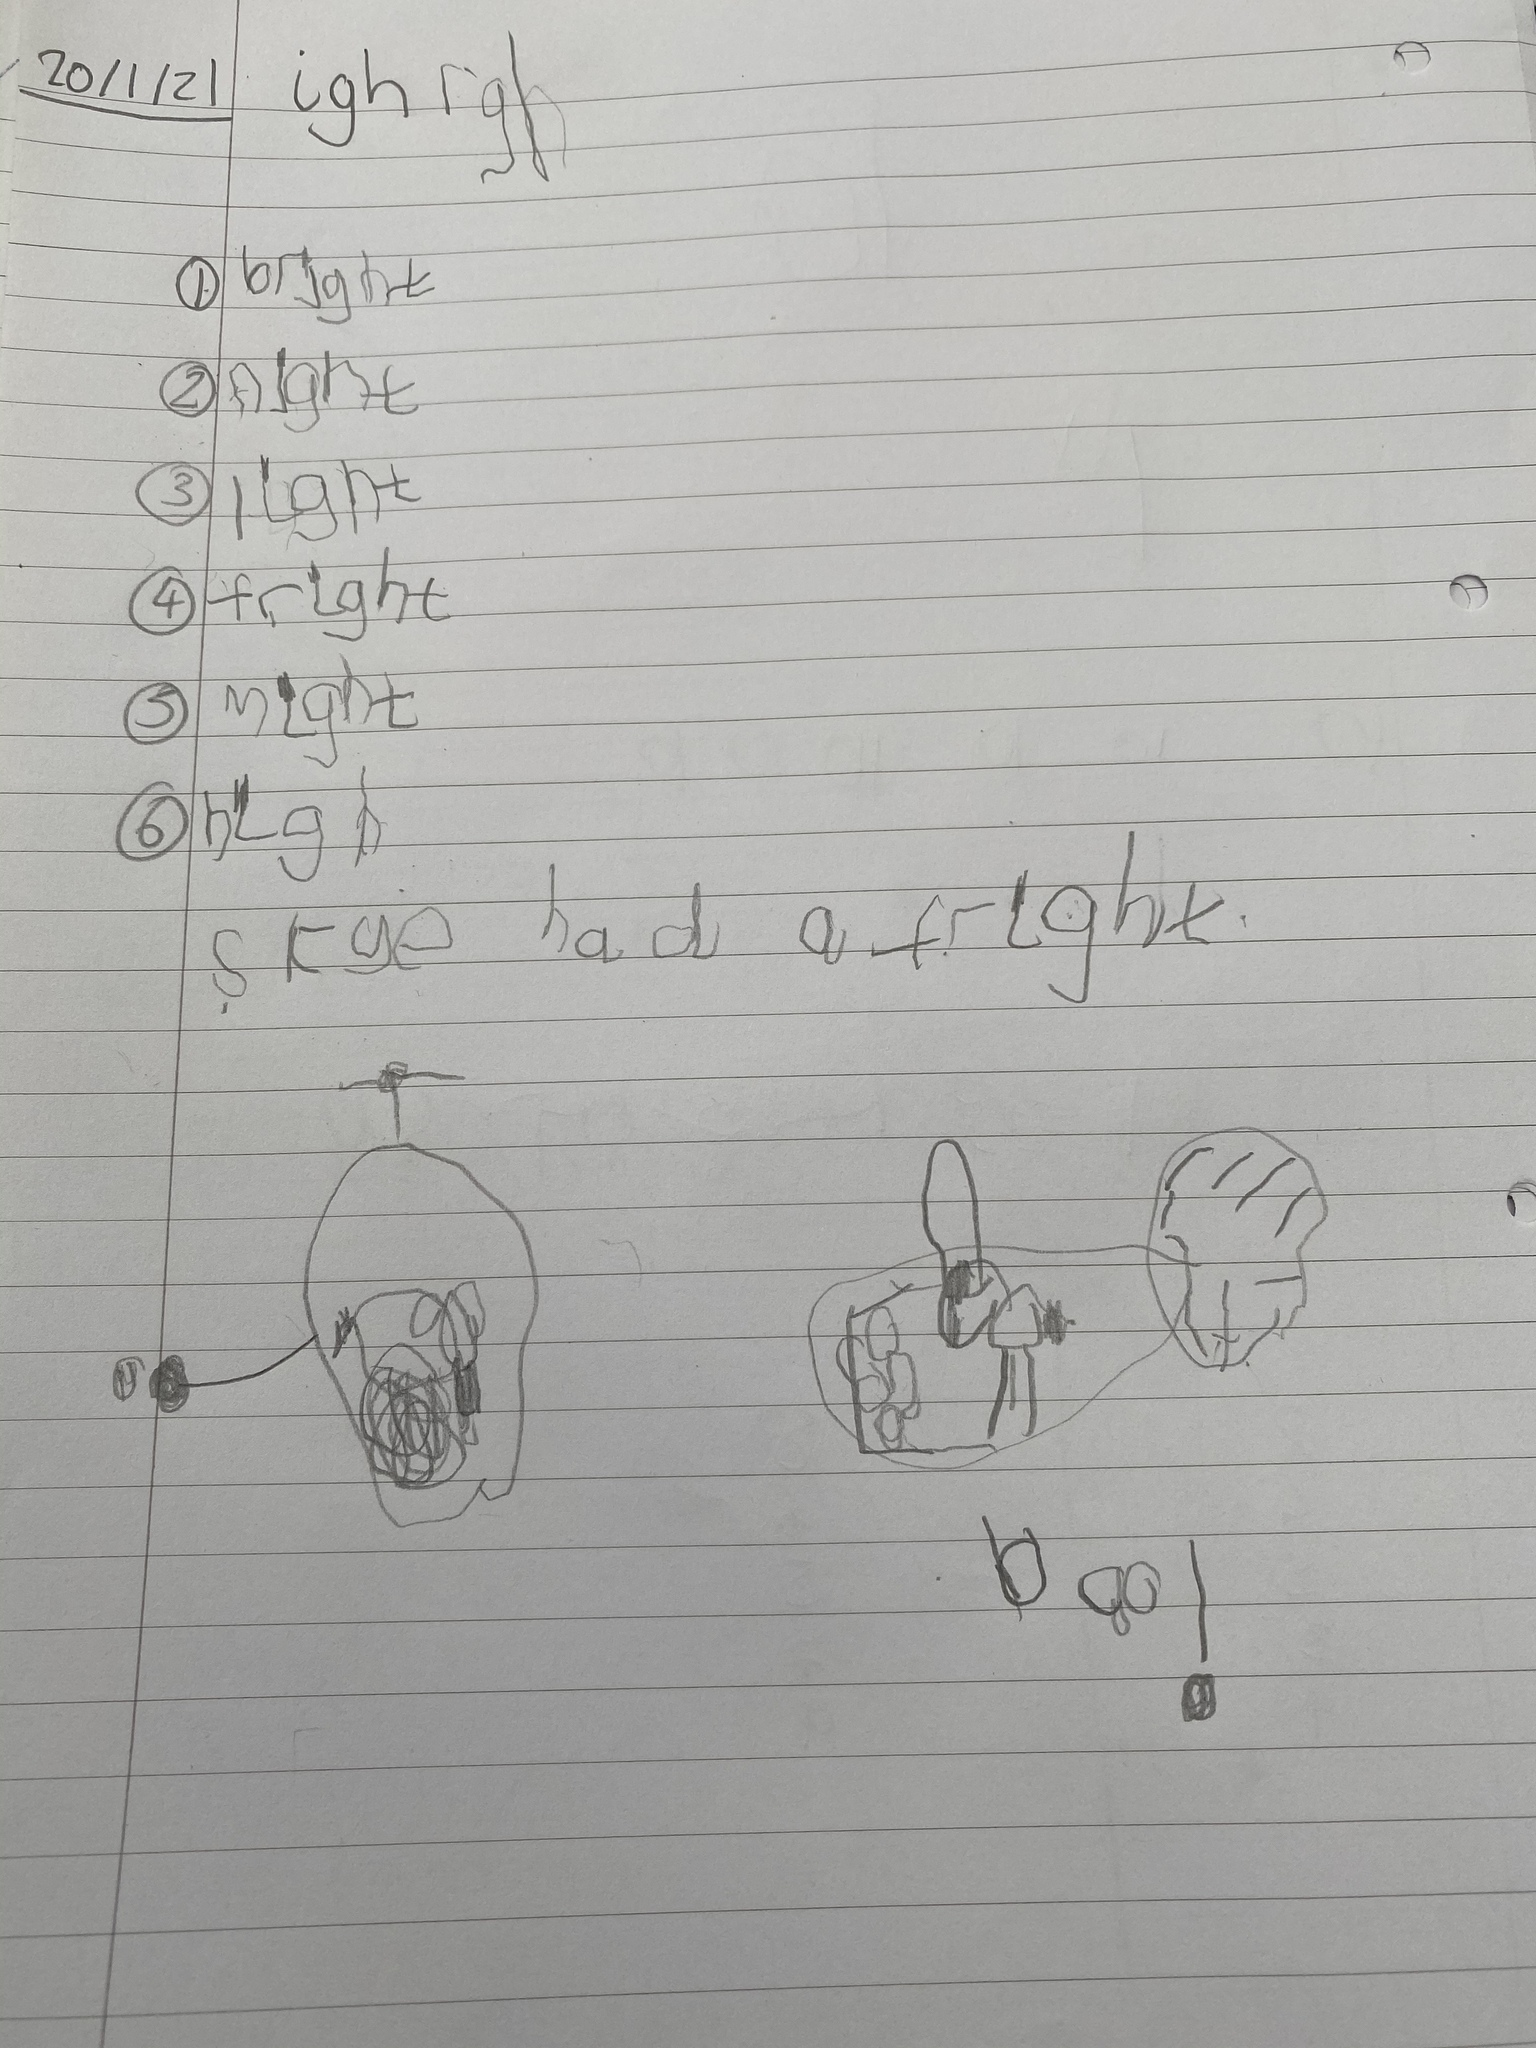 20/1/21 igh igh
① bright
② night
③ light
④ fright
⑤ might
⑥ high
had a fright.